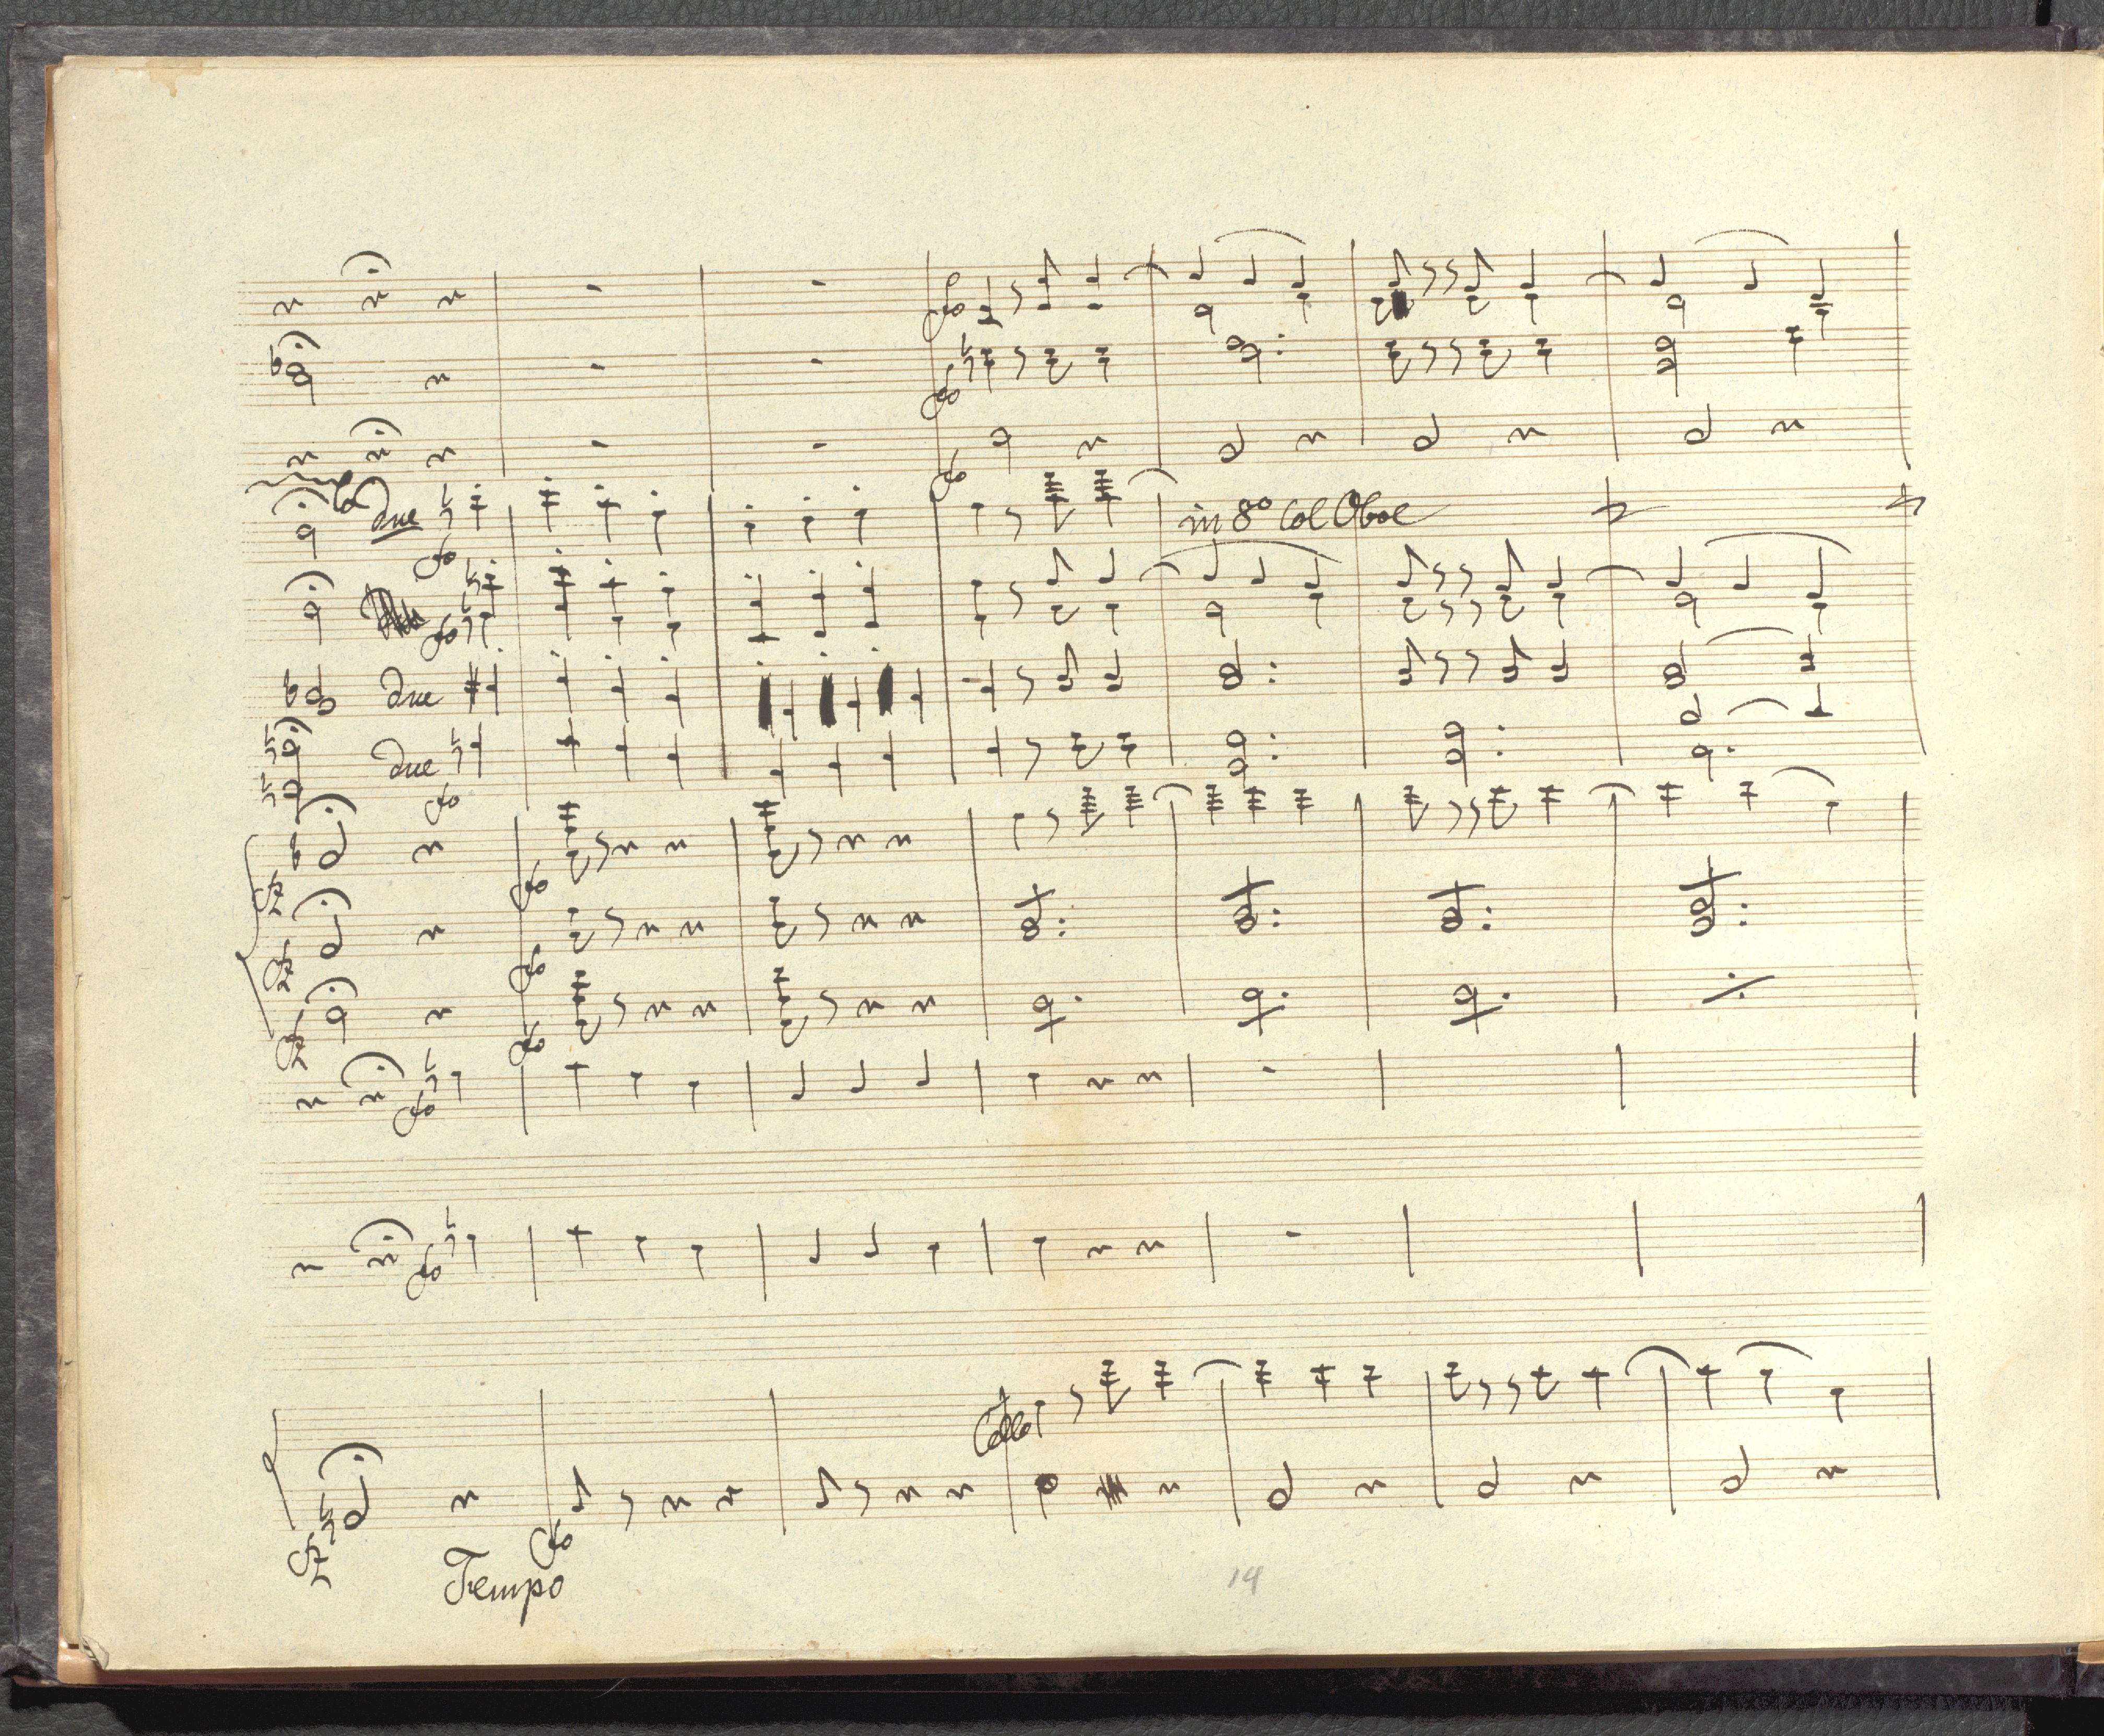 fo
fo
fo
due
fo
in 8º Col Oboe
fo
due
due
fo
fz
fo
fz
fo
fz
fo
fo
fo
Cello
fz
fo
Tempo
14